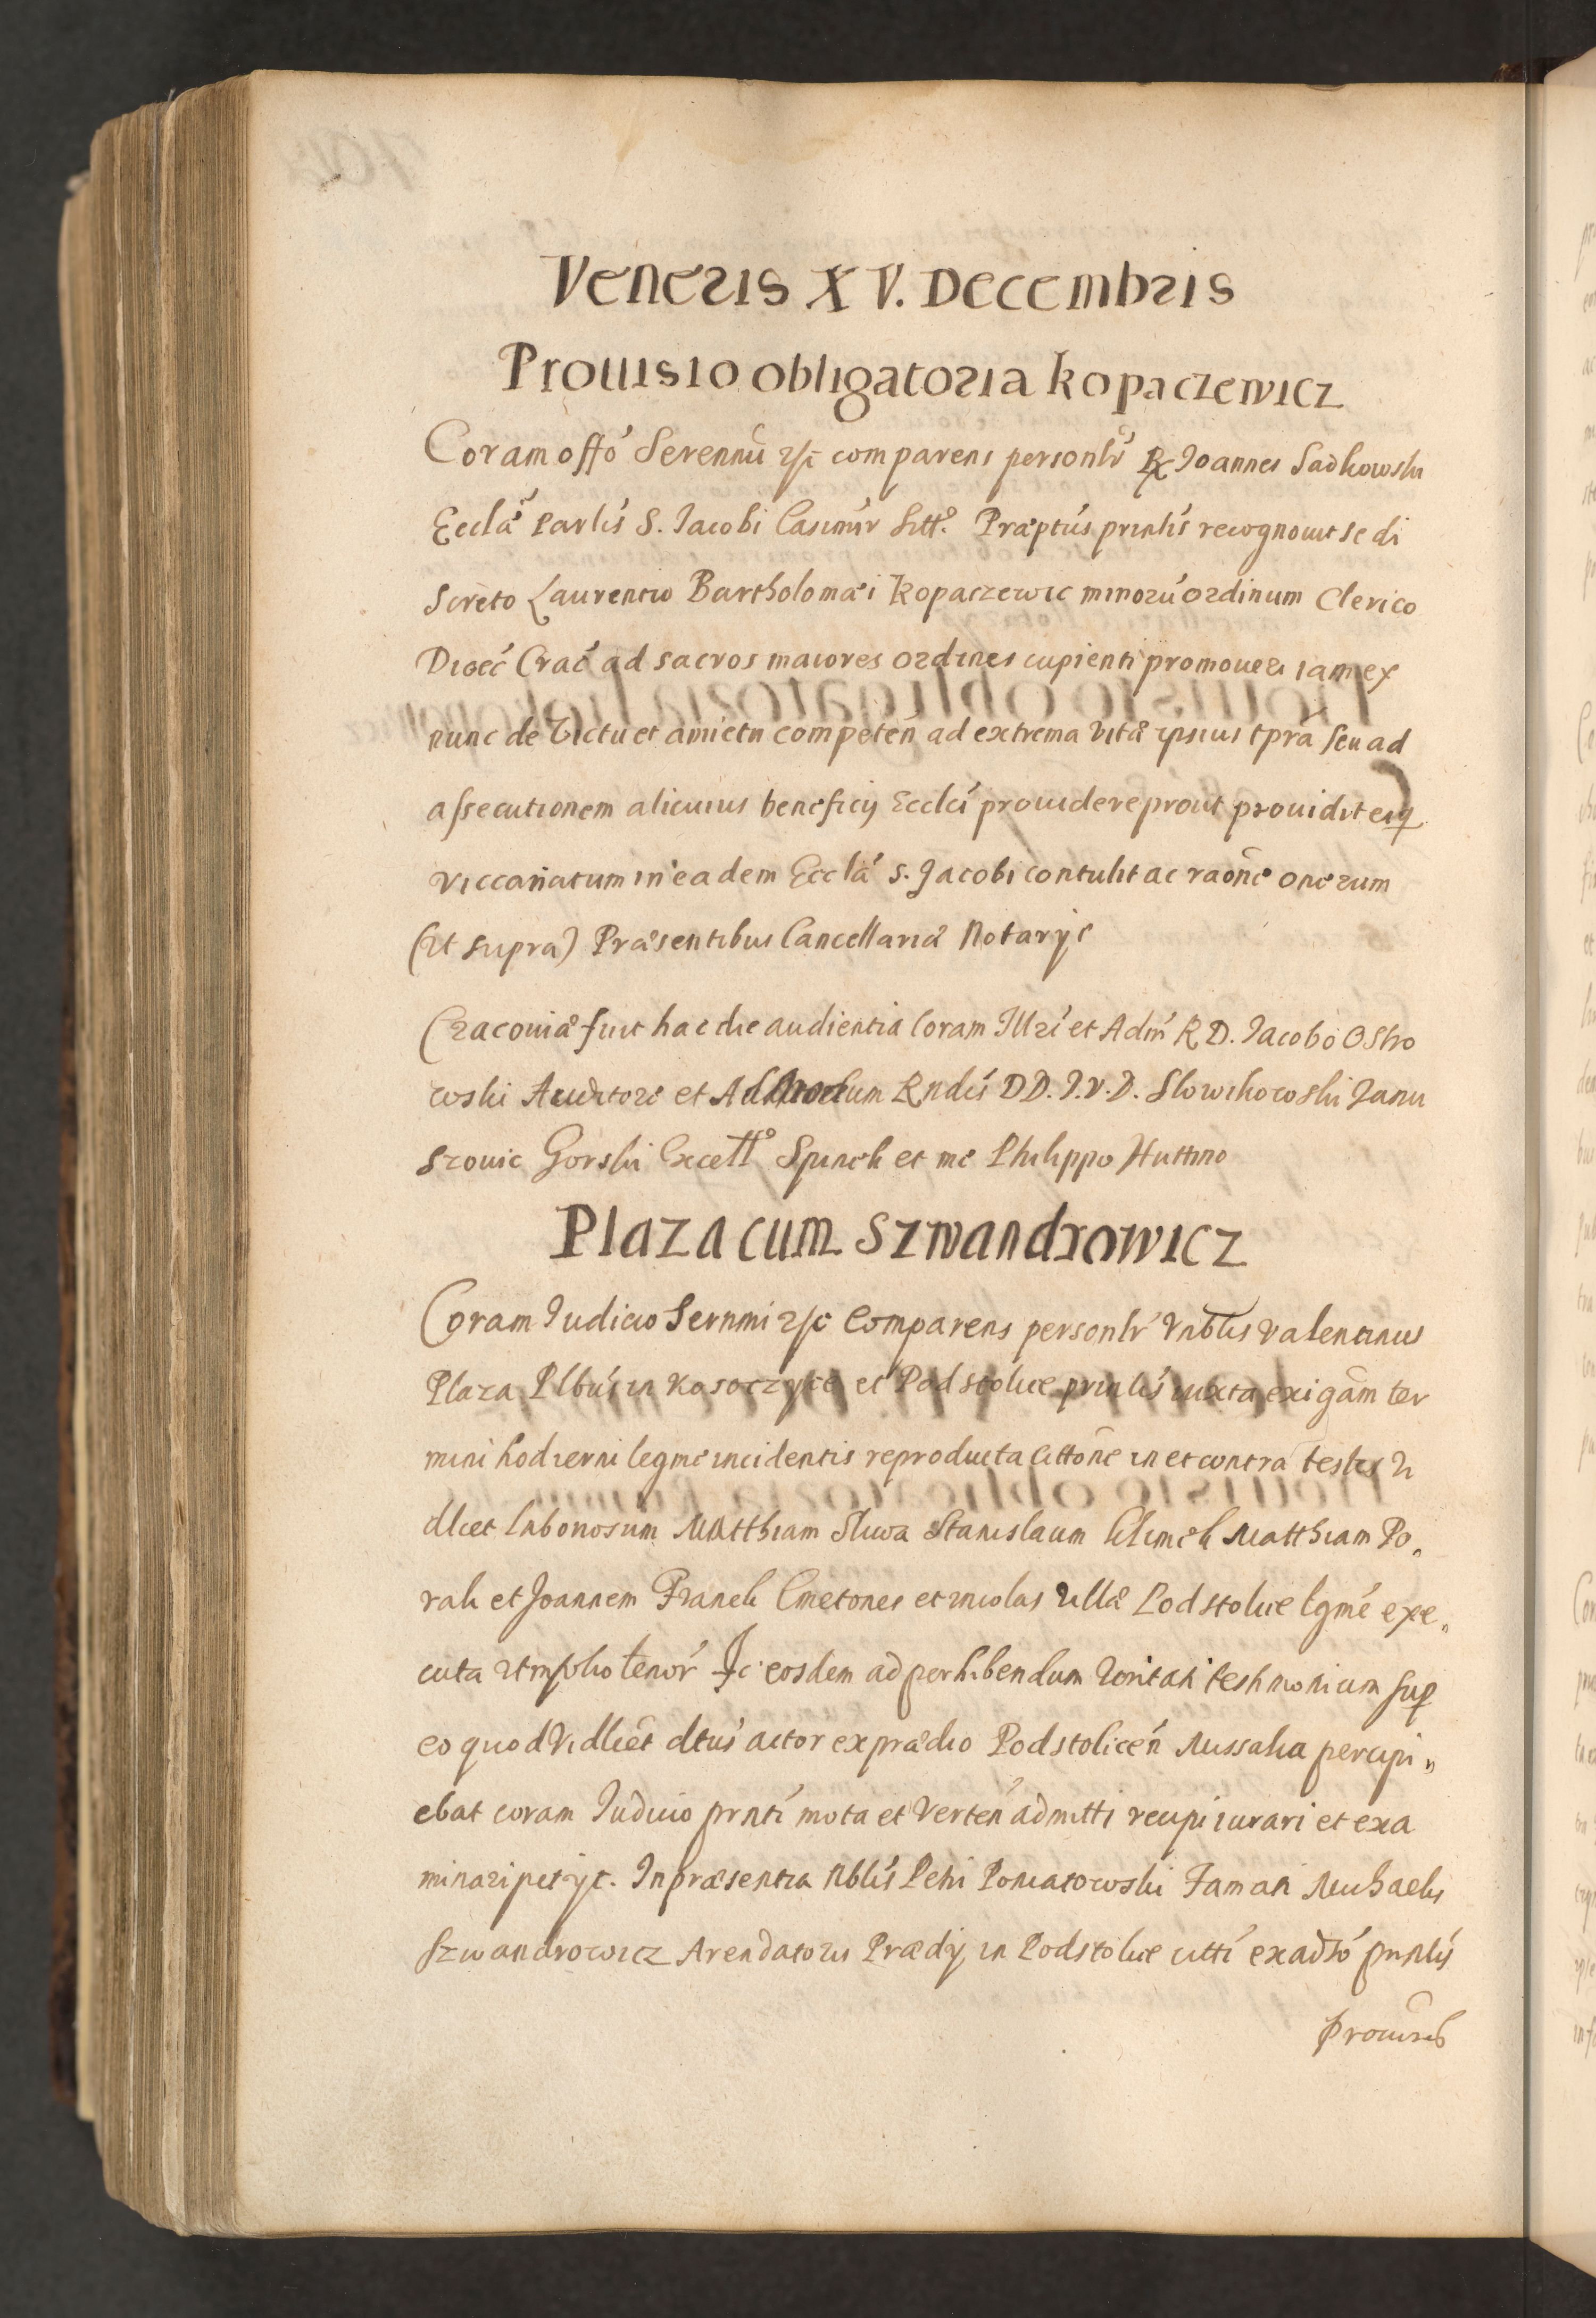 Veneris XV. Decembris
Prouisio obligatoria kopaczewicz
Coram offo Serennu comparens personlr Joannes Sadkowski
Ecclae Parlis S. Jacobi Casimir Praeptus prinlis recognouit se di
screto Laurentio Bartholomaei Kopaczewic minoru ordinum Clerico
Dioec Crac ad sacros maiores ordines cupienti promoueri iam ex
nunc de Victu et amictu competen ad extrema vitae ipsius tpra seu ad
assecutionem alicuius beneficij Eccleci prouidere prout prouidit eiq
viccariatum in eadem Eccla S. Jacobi contulit ac raone onerum
(Ut supra) Praesentibus Cancellariae Notarijs
Cracouiae fuit hac die audientia Coram Illri et Adm R D. Jacobo Ostro
wski Auditore et Admodum Rndis DD. J.V.D. Slowikowski Janu
szouic Gorski Excell Spinek et me Philippo Huttino
Plaza cum Szwandrowicz
Coram Judicio Sernmi comparens personlr Vnblis Valentinus
Plaza Plbus in Kosoczyce et Podstolice prinlis iuxta exigam ter
mini hodierni legme incidentis reproducta cittone in et contra testes vi
dlicet laboriosum Matthiam Sliwa Stanislaum Klimek Matthiam Po„
rak et Joannem Franek Cmetones et incolas villae Podstolice lgme exe„
cuta tenor eosdem ad perhibendum veritati testimonium sup
eo quod vidlicet dtus actor ex praedio Podstolicen Missalia percipi„
ebat coram Judicio prnti mota et verten admitti recipi iurari et exa
minari petijt. In praesentia Nblis Petri Poniatowski Famati Michaelis
Szwandrowicz Arendatoris Praedij in Podstolice citti exadso prinlis
procuris